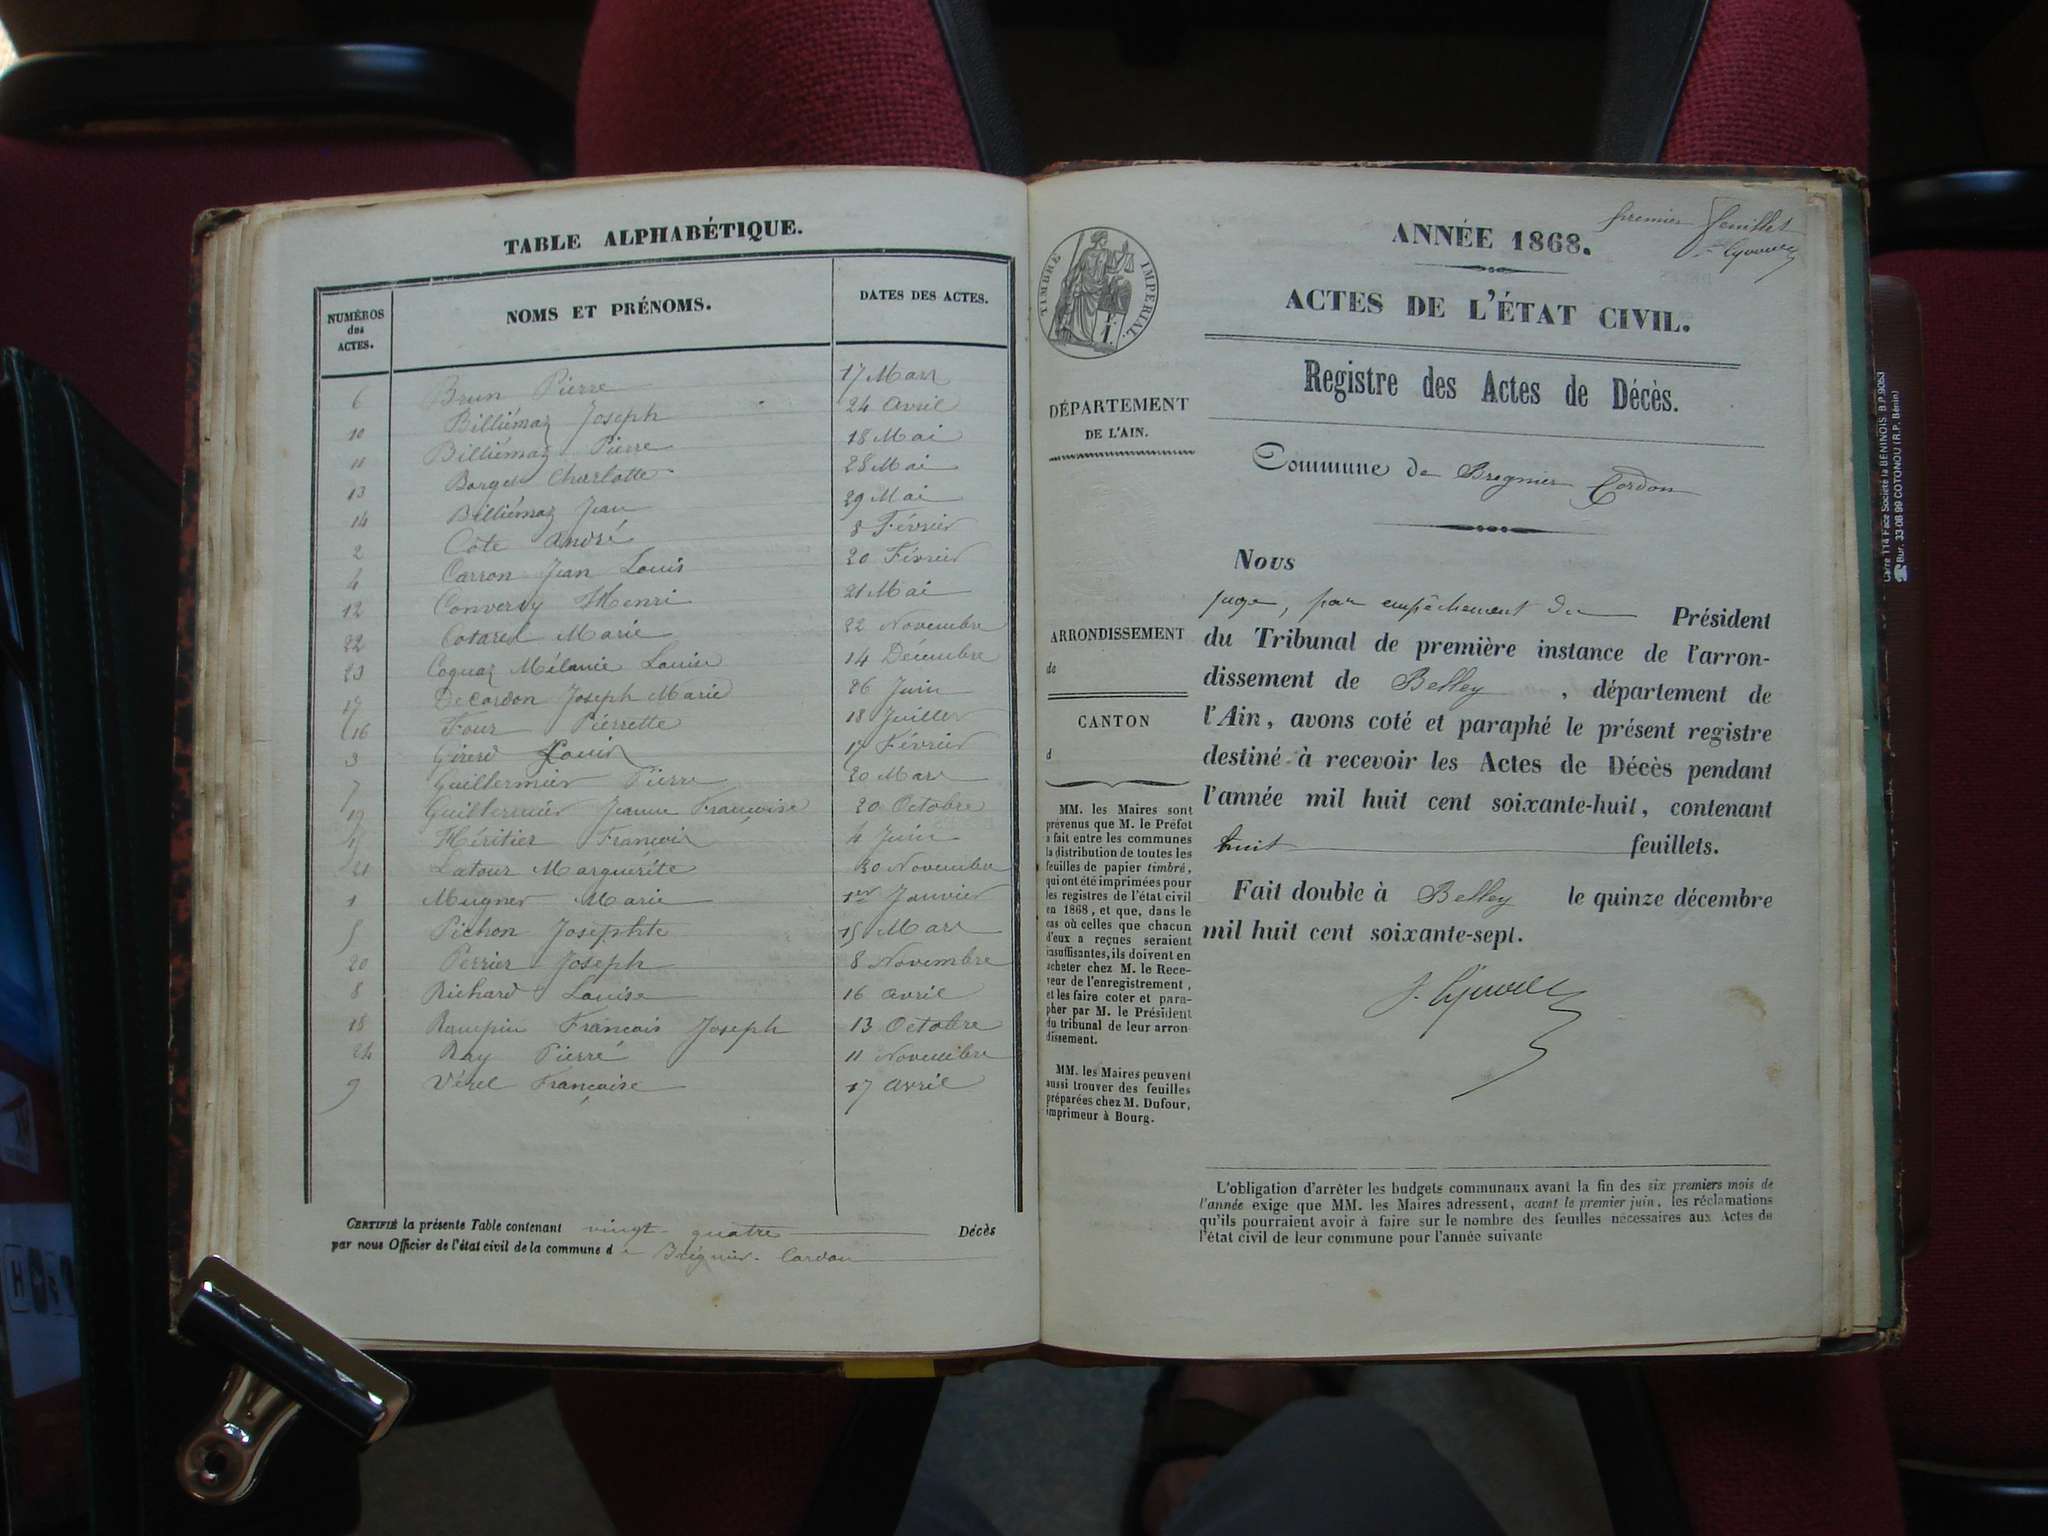 TABLE ALPHABÉTIQUE.
NUMÉROS des ACTES. NOMS ET PRÉNOMS. DATES DES ACTES.
6 Brun Pierre 17 Mars
10 Billiémaz Joseph 24 avril
11 Billiémaz Pierre 18 Mai
13 Borget Charlotte 28 Mai
14 Billiémaz Jean 29 Mai
2 Côte André 8 Février
4 Carron Jean Louis 20 Février
12 Conversy Henri 21 Mai
22 Cotarel Marie 22 Novembre
23 Coquaz Mélanie Louise 14 Décembre
17 De Cordon Joseph Marie 26 Juin
16 Four Pierrette 18 Juillet
3 Girerd Louis 17 Février
7 Guillermier Pierre 20 Mars
19 Guillermier Jeanne Françoise 20 Octobre
Héritier François 4 Juin
21 Latour Marguerite 30 Novembre
1 Mugner Marie 1er Janvier
5 Pichon Josephte 15 Mars
20 Perrier Joseph 8 Novembre
8 Richard Louise 16 avril
18 Rampin François Joseph 13 Octobre
24 Ray Pierre 11 Novembre
9 Vérel Françoise 17 avril
CERTIFIÉ la présente Table contenant vingt quatre Décès
par nous Officier de l'état civil de la commune de Brégnier-Cordon
premier feuillet
ANNÉE 1868.
TIMBRE IMPÉRIAL.
ACTES DE L'ÉTAT CIVIL.
Registre des Actes de Décès.
DÉPARTEMENT
DE L'AIN.
Commune de Bregnier Cordon
ARRONDISSEMENT
de
CANTON
d
MM. les Maires sont
prévenus que M. le Préfet
a fait entre les communes
la distribution de toutes les
feuilles de papier timbré,
qui ont été imprimées pour
les registres de l'état civil
en 1868, et que, dans le
cas où celles que chacun
d'eux a reçues seraient
insuffisantes, ils doivent en
acheter chez M. le Rece-
veur de l'enregistrement,
et les faire coter et para-
pher par M. le Président
du tribunal de leur arron-
dissement.
MM. les Maires peuvent
aussi trouver des feuilles
préparées chez M. Dufour,
imprimeur à Bourg.
Nous
juge, par empêchement du Président
du Tribunal de première instance de l'arron-
dissement de Belley, département de
l'Ain, avons coté et paraphé le présent registre
destiné à recevoir les Actes de Décès pendant
l'année mil huit cent soixante-huit, contenant
huit feuillets.
Fait double à Belley le quinze décembre
mil huit cent soixante-sept.
L'obligation d'arrêter les budgets communaux avant la fin des six premiers mois de
l'année exige que MM. les Maires adressent, avant le premier juin, les réclamations
qu'ils pourraient avoir à faire sur le nombre des feuilles nécessaires aux Actes de
l'état civil de leur commune pour l'année suivante
Carré 114 Face Société la BENINOIS B.P.9063
Bur. 33 08 99 COTONOU (R.P. Bénin)